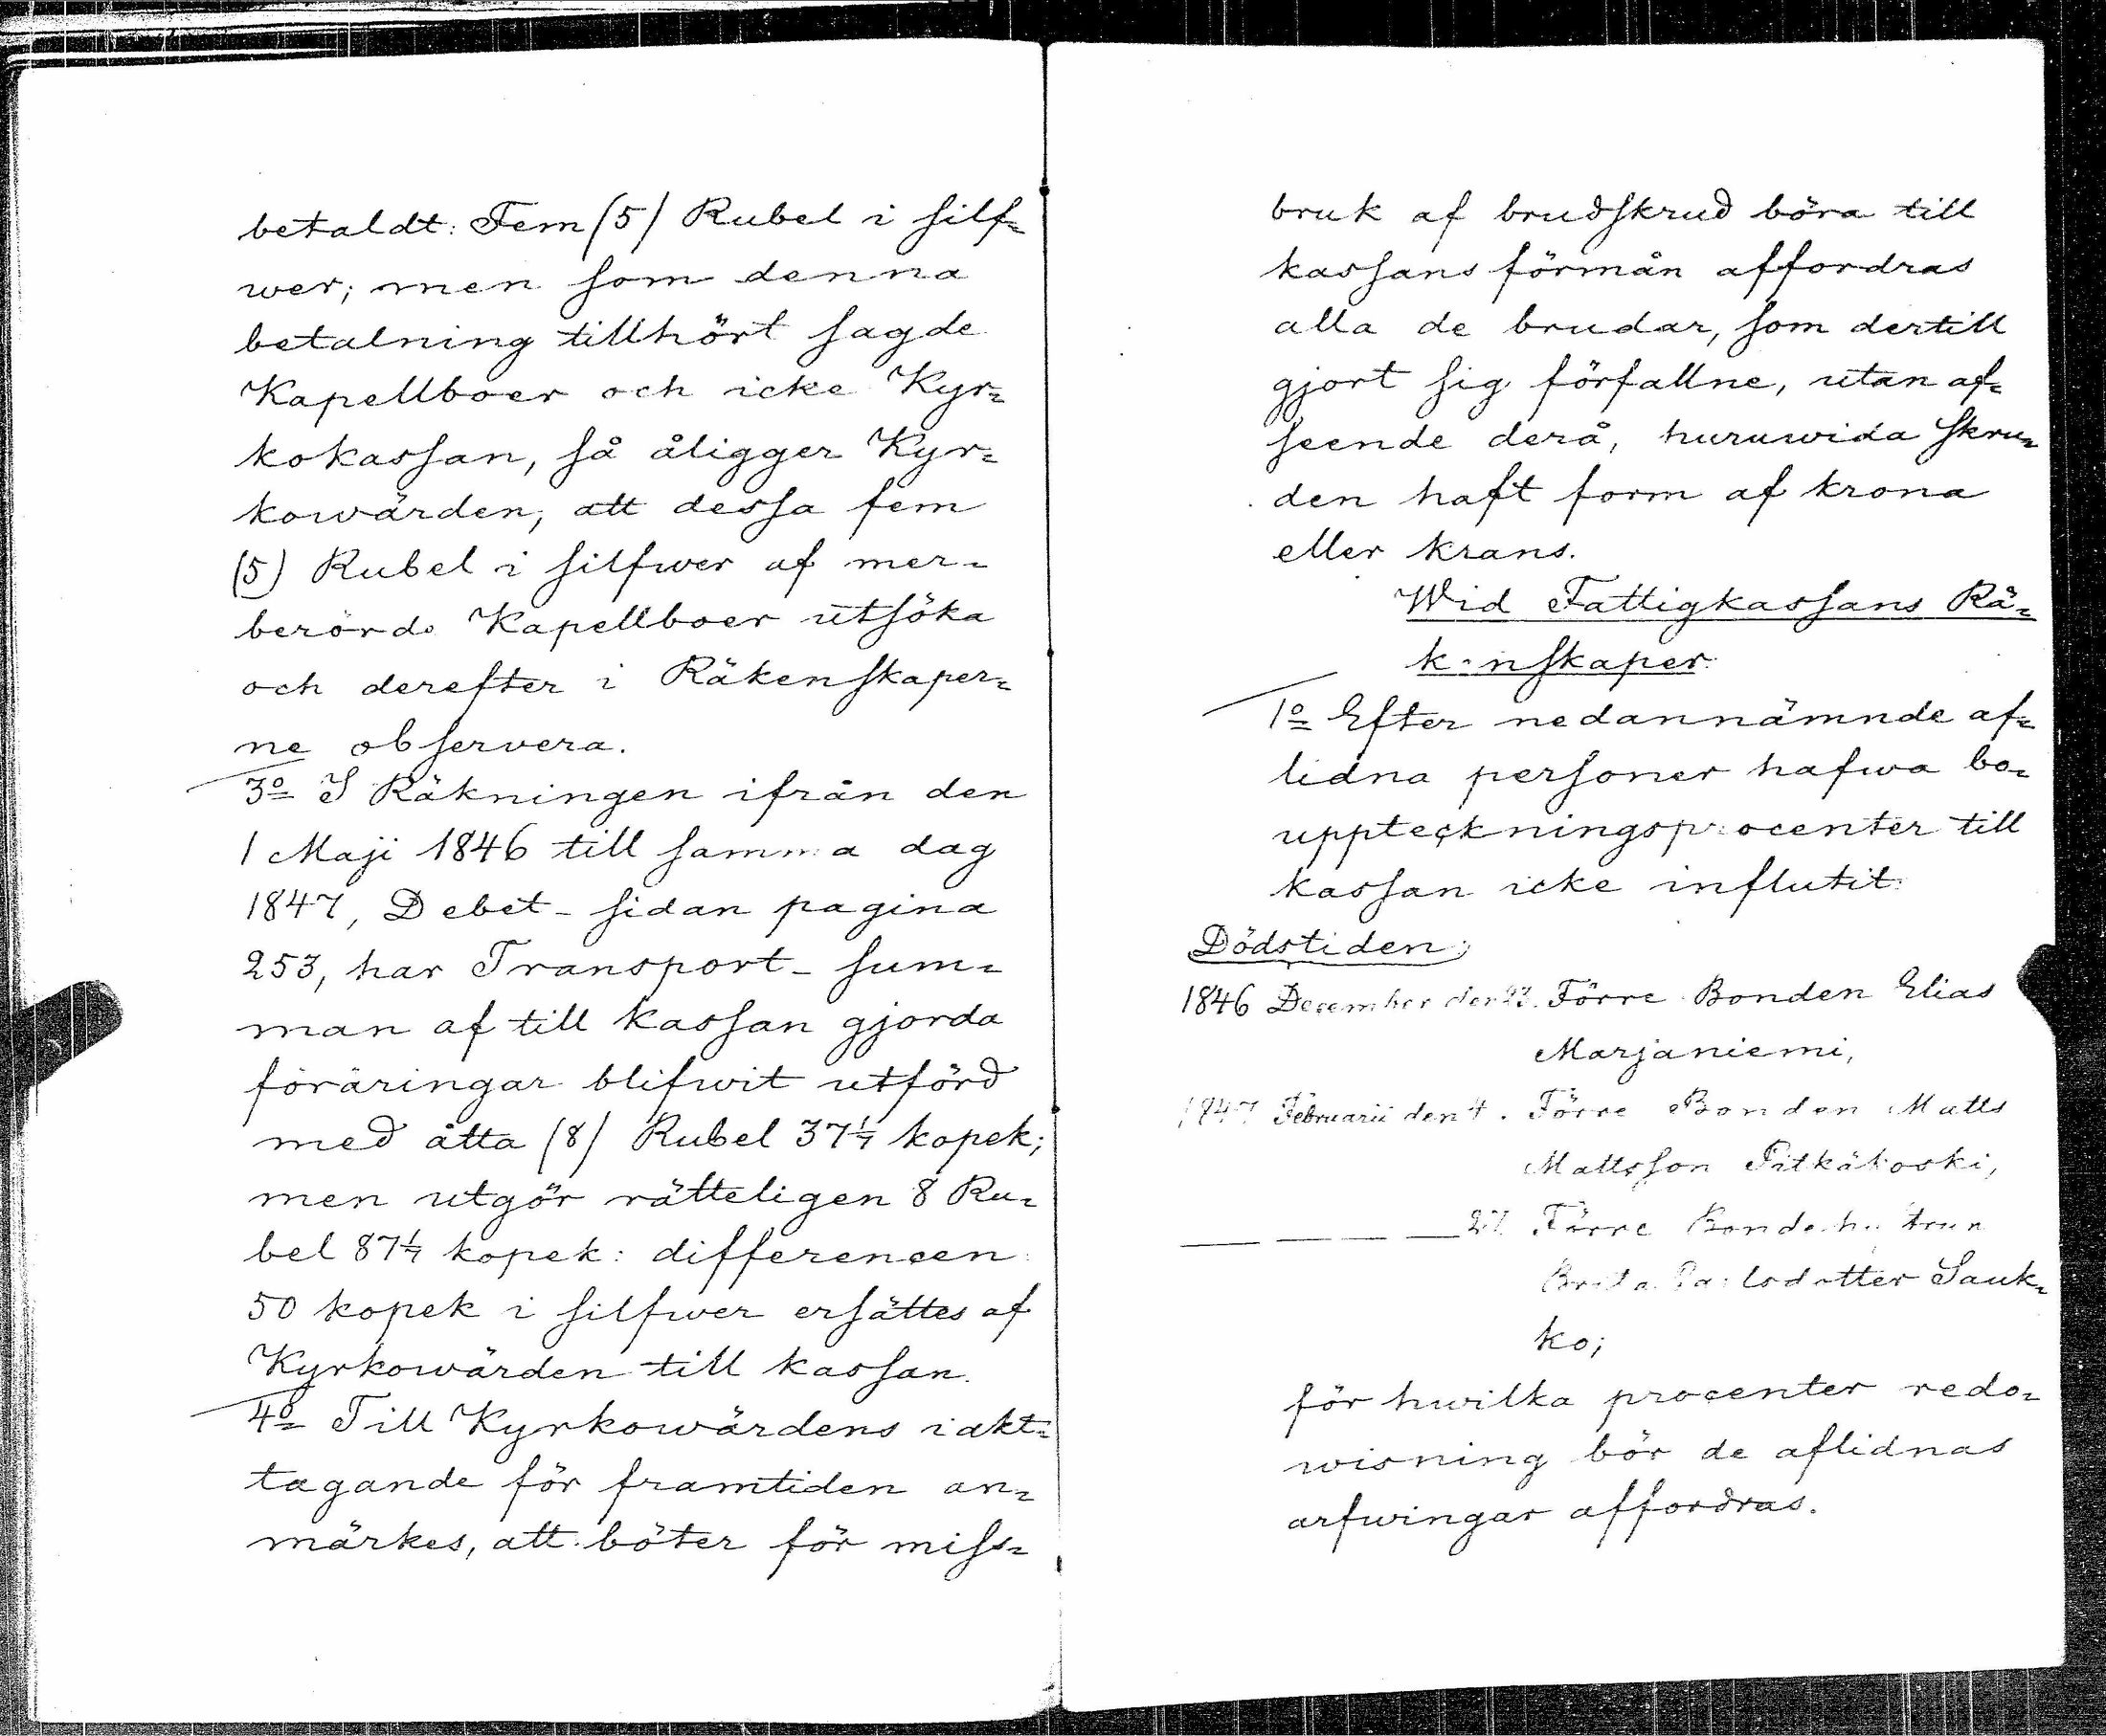 betaldt: Fem (5) Rubel i silf=
wer; men som denna
betalning tillhört sagde
Kapellboer och icke Kyr=
kokassan, så åligger Kyr=
kowärden, att dessa fem
(5) Rubel i silfwer af mer=
berörde Kapellboer utsöka
och derefter i Räkenskaper=
ne observera.
3o I Räkningen ifrån den
1 Maji 1846 till samma dag
1847, Debet-sidan pagina
253, har Transport-sum=
man af till kassan gjorda
föräringar blifwit utförd
med åtta (8) Rubel 37 1/7 kopek;
men utgör rätteligen 8 Ru=
bel 87 1/7 kopek: differencen
50 kopek i silfwer ersättes af
Kyrkowärden till kassan.
4o Till Kyrkowärdens iakt=
tagande för framtiden an=
märkes, att böter för miss=
bruk af brudskrud böra till
kassans förmån affordras
alla de brudar, som dertill
gjort sig förfallne, utan af=
seende derå, huruwida skru=
den haft form af krona
eller krans.
Wid Fattigkassans Rä=
kenskaper.
1o Efter nedannämnde af=
lidna personer hafwa bo=
uppteckningsprocenter till
kassan icke influtit:
Dödstiden:
1846 December den 23. Förre Bonden Elias
Marjaniemi,
1847 Februarii den 4. Förre Bonden Matts
Mattsson Pitkäkoski,
27 Förre Bondehustrun
Brita Palsdotter Sauk=
ko;
för hwilka procenter redo=
wisning bör de aflidnas
arfwingar affordras.